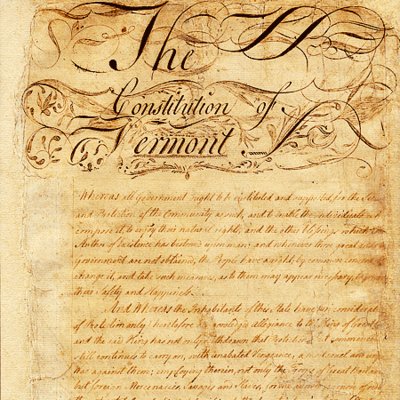 The
Constitution of
Vermont
Whereas all government ought to be instituted and supported for the
and Protection of the Community as such, and to enable the individuals
compose it to enjoy their natural rights, and the other blessings which the
Author of Existence has bestowed upon man; and whenever those great ends of
government are not obtained, the People have a right, by common consent
change it, and take such measures, as to them may appear necessary to promote
their Safety and Happiness.
And Whereas the Inhabitants of this State have, in consideration
of Protection only, heretofore acknowledged allegiance to the King of
and the said King has not only withdrawn that Protection, but commenced
still continues to carry on, with unabated Vengeance, a most cruel and unjust
War against them; employing therein, not only the Troops of Great Britain
but foreign Mercenaries, Savages and Slaves, for the avowed purpose of